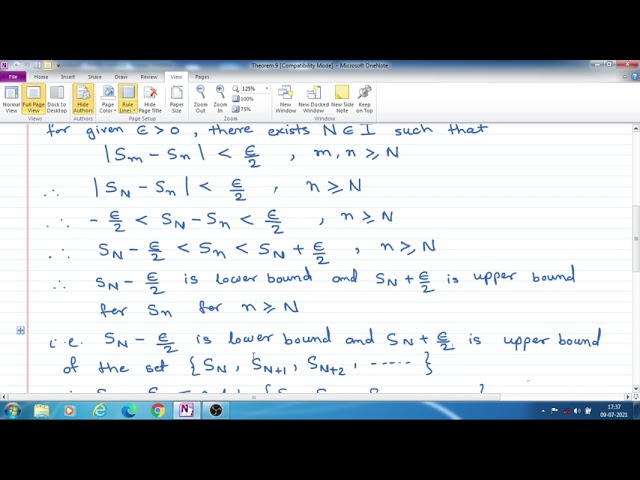 Theorem 9 [Compatibility Mode] - Microsoft OneNote
File Home Insert Share Draw Review View Pages
Normal View Full Page View Dock to Desktop Hide Authors Page Color Rule Lines Paper Size Zoom Out Zoom In 125% 100% 75% New Window New Docked Window New Side Note Keep on Top
Views Authors Page Setup Zoom Window
for given ϵ > 0 , there exists N ∈ I such that
|Sm − Sn| < ϵ/2 , m, n ⩾ N
∴ |SN − Sn| < ϵ/2 , n ⩾ N
∴ −ϵ/2 < SN − Sn < ϵ/2 , n ⩾ N
∴ SN − ϵ/2 < Sn < SN + ϵ/2 , n ⩾ N
∴ SN − ϵ/2 is lower bound and SN + ϵ/2 is upper bound
for Sn for n ⩾ N
i.e. SN − ϵ/2 is lower bound and SN + ϵ/2 is upper bound
of the set {SN, SN+1, SN+2, ----- }
17:37
09-07-2021